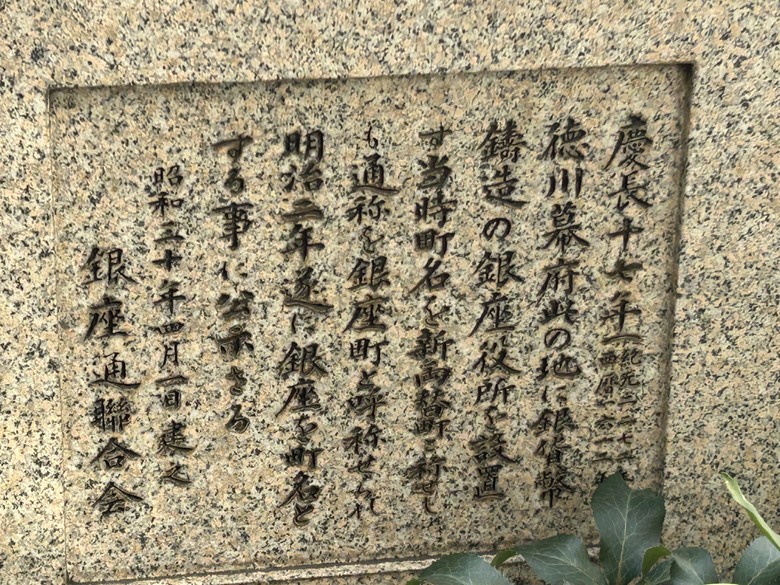 慶長十七年(紀元二二七二 西暦一六一二
徳川幕府此の地に銀貨幣
鋳造の銀座役所を設置
す当時町名を新両替町と称せし
も通称を銀座町と呼称せられ
明治二年遂に銀座を町名と
する事に公示さる
昭和三十年四月一日建之
銀座通聯合会